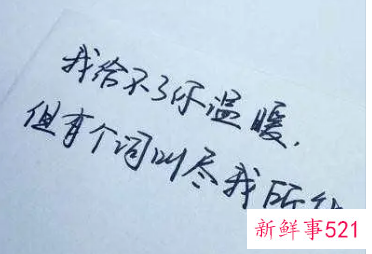 我给不了你温暖,
但有个词叫尽我所
新鲜事521